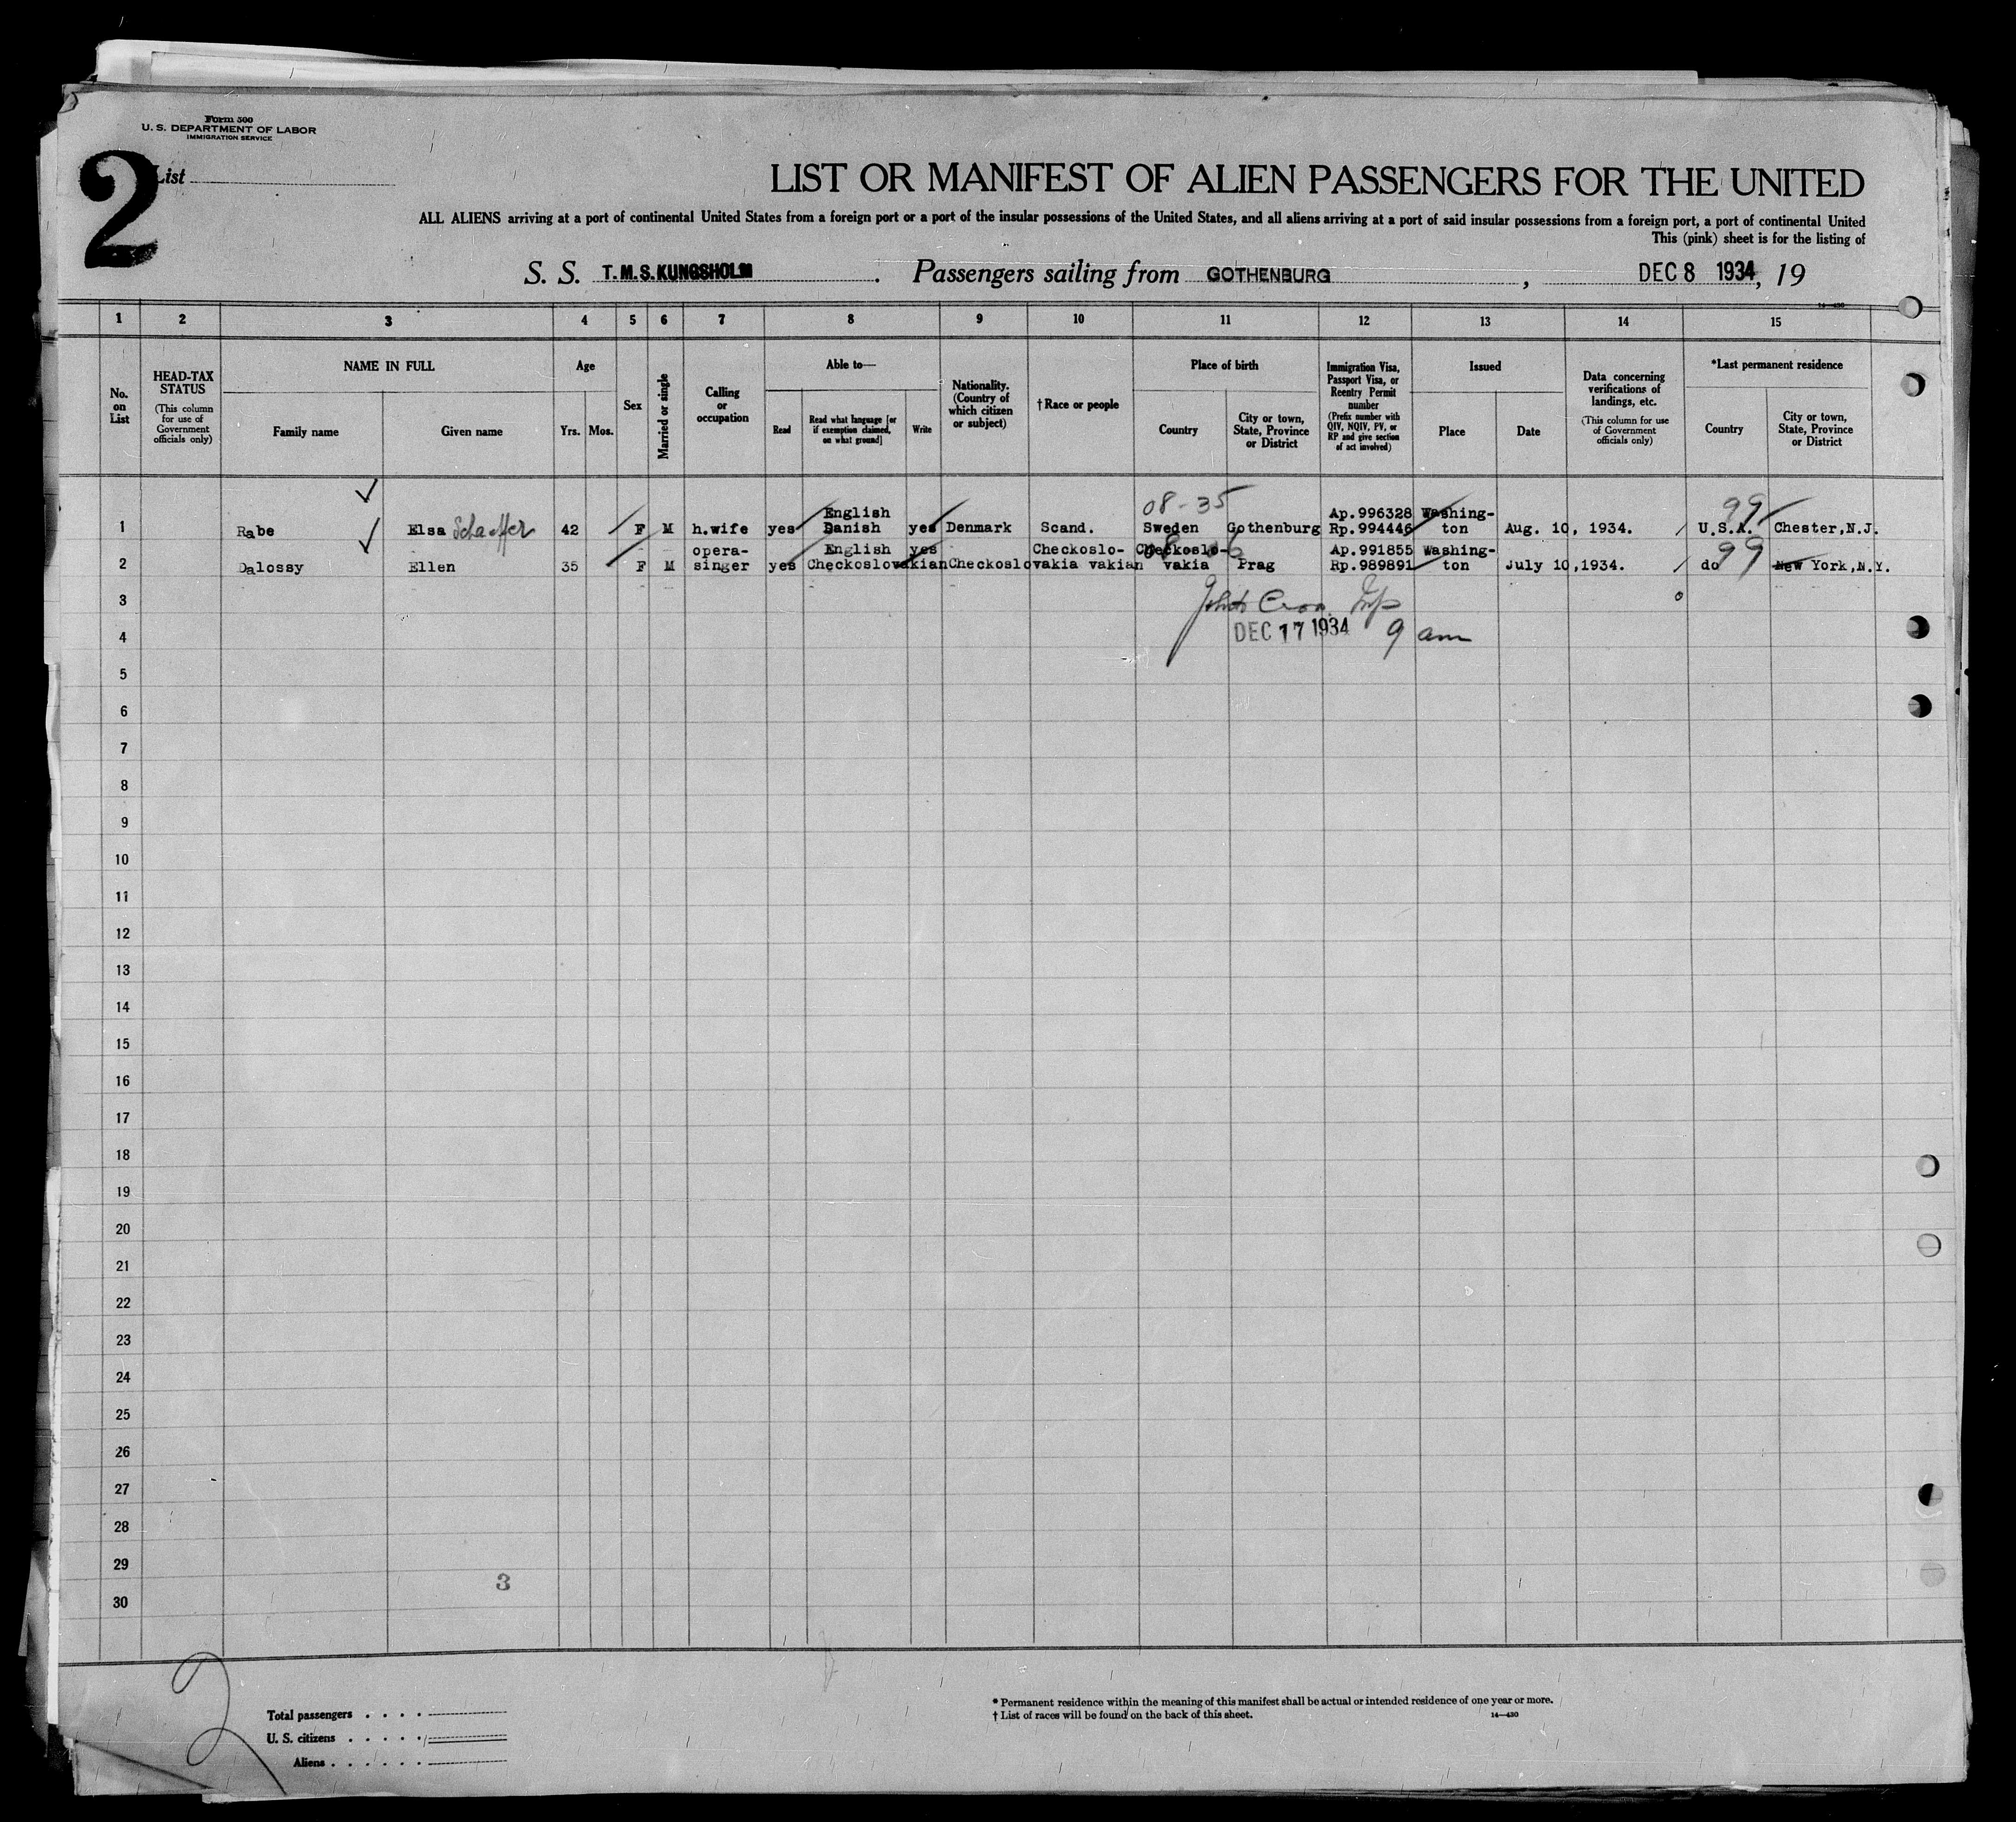 Form 500
U. S. DEPARTMENT OF LABOR
IMMIGRATION SERVICE
2
List
LIST OR MANIFEST OF ALIEN PASSENGERS FOR THE UNITED
ALL ALIENS arriving at a port of continental United States from a foreign port or a port of the insular possessions of the United States, and all aliens arriving at a port of said insular possessions from a foreign port, a port of continental United
This (pink) sheet is for the listing of
S. S. T.M.S. KUNGSHOLM . Passengers sailing from GOTHENBURG , DEC 8 1934, 19
14—430
1 2 3 4 5 6 7 8 9 10 11 12 13 14 15
No. on List
HEAD-TAX STATUS
(This column for use of Government officials only)
NAME IN FULL
Family name
Given name
Age
Yrs. Mos.
Sex
Married or single
Calling or occupation
Able to—
Read
Read what language [or if exemption claimed, on what ground]
Write
Nationality. (Country of which citizen or subject)
† Race or people
Place of birth
Country
City or town, State, Province or District
Immigration Visa, Passport Visa, or Reentry Permit number
(Prefix number with QIV, NQIV, PV, or RP and give section of act involved)
Issued
Place
Date
Data concerning verifications of landings, etc.
(This column for use of Government officials only)
*Last permanent residence
Country
City or town, State, Province or District
08-35 99
English Ap.996328 Washing-
1 Rabe Elsa Schaeffer 42 F M h.wife yes Danish yes Denmark Scand. Sweden Gothenburg Rp.994446 ton Aug. 10, 1934. U.S.A. Chester,N.J.
opera- English yes Checkoslo- Checkoslo- Ap.991855 Washing- 99
2 Dalossy Ellen 35 F M singer yes Checkoslovakian Checkoslovakia vakian vakia Prag Rp.989891 ton July 10,1934. do New York,N.Y.
3
4 DEC 17 1934 9 am
5
6
7
8
9
10
11
12
13
14
15
16
17
18
19
20
21
22
23
24
25
26
27
28
29
3
30
2
Total passengers
U. S. citizens
Aliens
* Permanent residence within the meaning of this manifest shall be actual or intended residence of one year or more.
† List of races will be found on the back of this sheet.
14—430